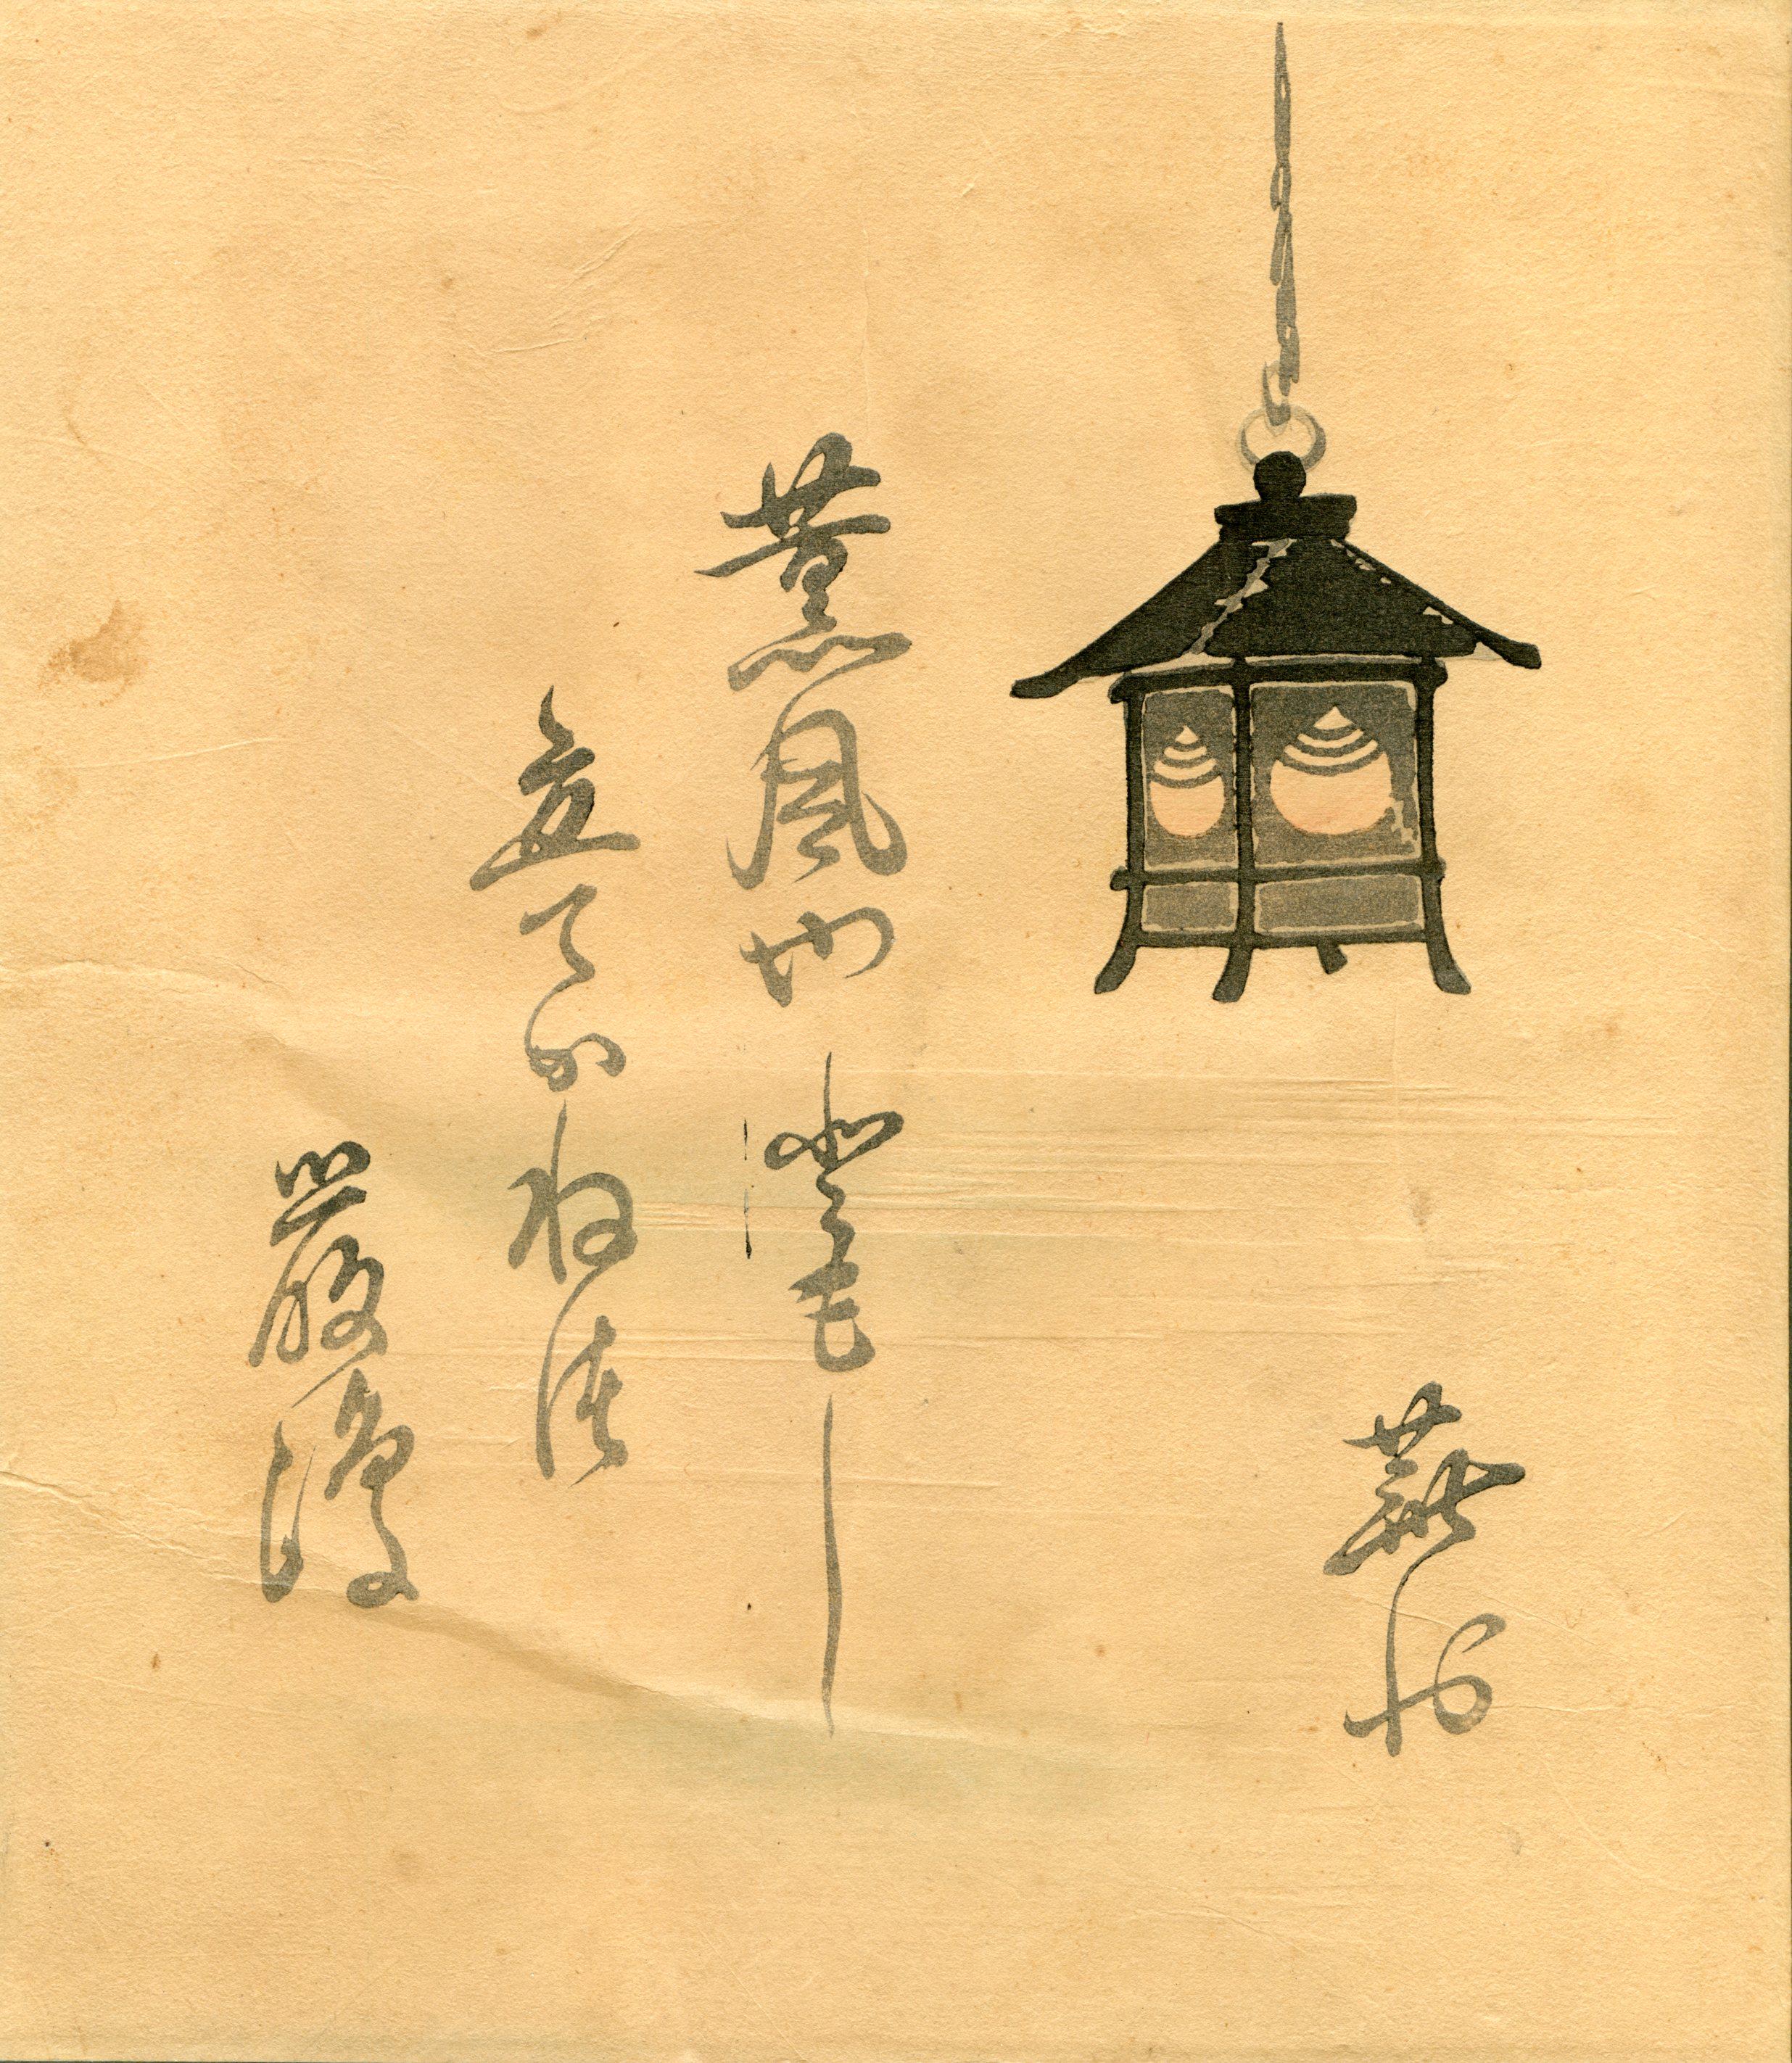 蕪村
薫風やともし
立てかねつ
厳嶋